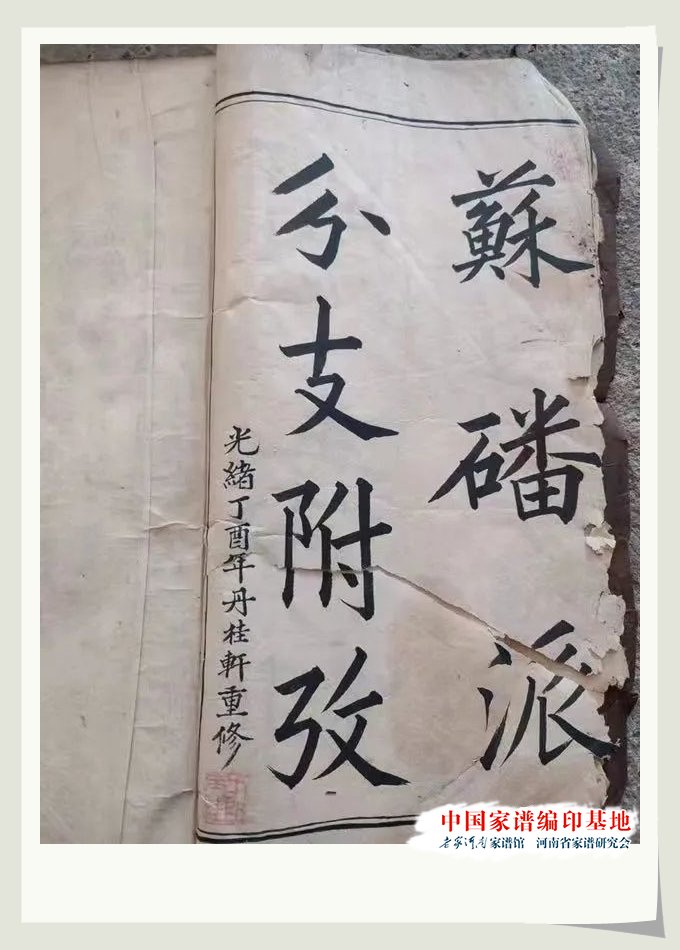 蘇磻派
分支附攷
光緒丁酉年丹桂軒重修
中国家谱编印基地
老家河南家谱馆 河南省家谱研究会